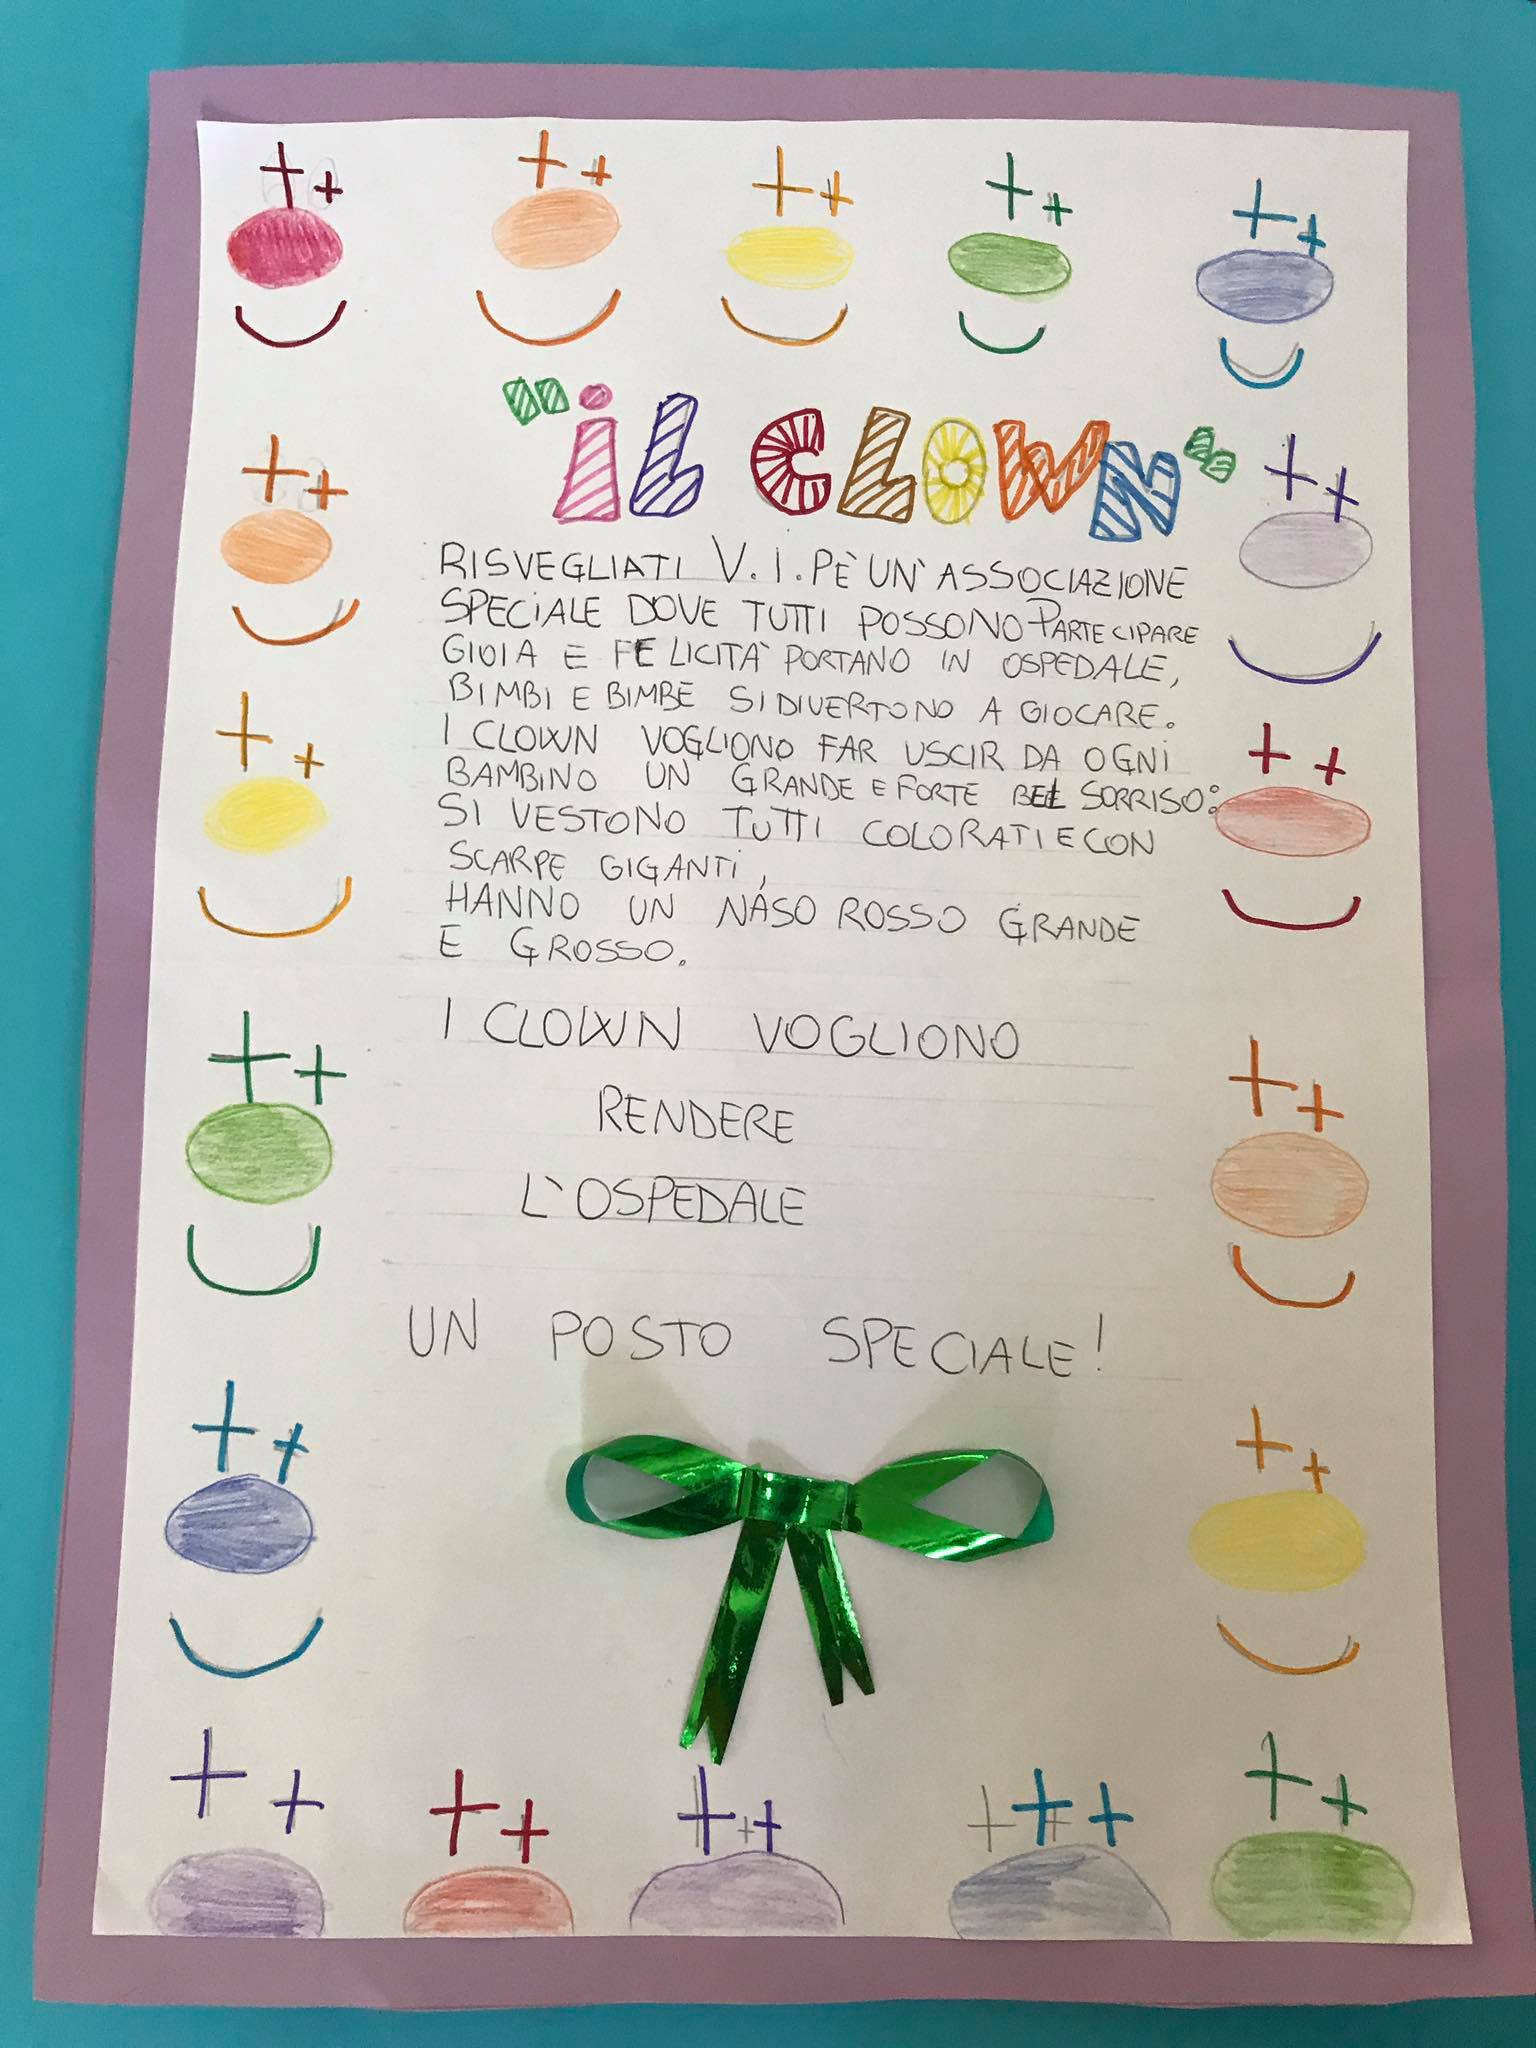 "iL CLOWN"
RISVEGLIATI V.I.PÈ UN'ASSOCIAZIONE
SPECIALE DOVE TUTTI POSSONO PARTECIPARE
GIOIA E FELICITÀ PORTANO IN OSPEDALE,
BIMBI E BIMBE SI DIVERTONO A GIOCARE.
I CLOWN VOGLIONO FAR USCIR DA OGNI
BAMBINO UN GRANDE E FORTE BEL SORRISO:
SI VESTONO TUTTI COLORATI E CON
SCARPE GIGANTI,
HANNO UN NASO ROSSO GRANDE
E GROSSO.
I CLOWN VOGLIONO
RENDERE
L'OSPEDALE
UN POSTO SPECIALE!